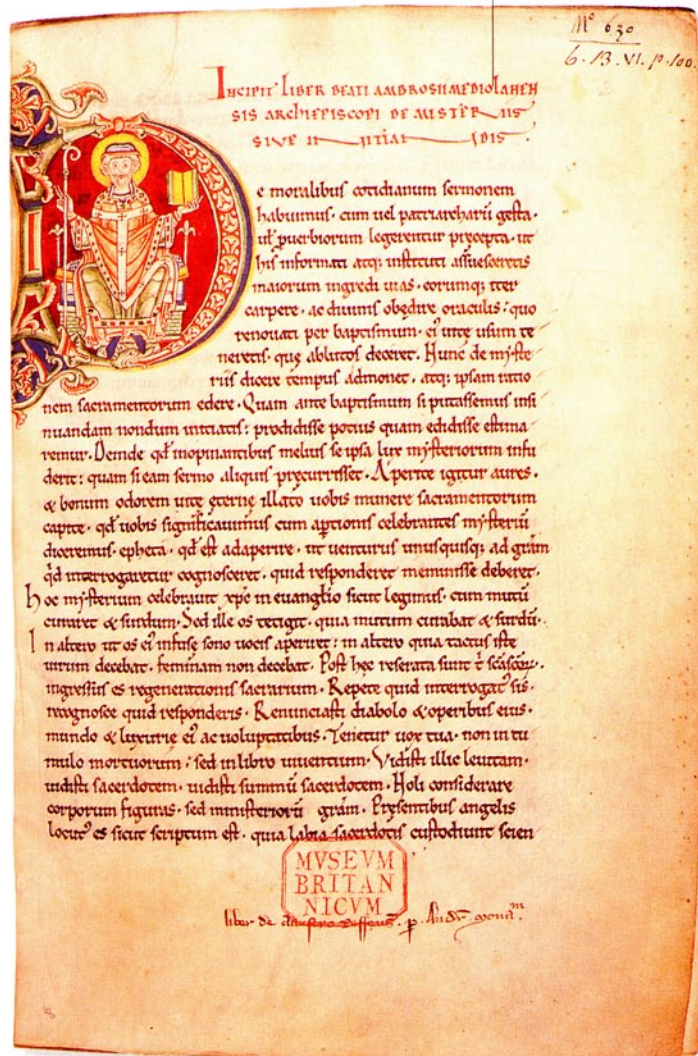 Mº 630
6. B. VI. p. 100.
2
INCIPIT LIBER BEATI AMBROSII MEDIOLANEN
SIS ARCHIEPISCOPI DE MISTERIIS
SIVE INITIANDIS.
De moralibus cotidianum sermonem
habuimus. cum uel patriarcharū gesta.
uł ꝓuerbiorum legerentur pręcepta. ut
his informati atq; instituti assuesceretis
maiorum ingredi uias. eorumq; iter
carpere. ac diuinis obędire oraculis: quo
renouati per baptismum. ei' uitę usum te
neretis. quę ablutos deceret. Hunc de myste
riis dicere tempus admonet. atq; ipsam ratio
nem sacramentorum edere. Quam ante baptismum si putassemus insi
nuandam nondum initiatis: prodidisse potius quam edidisse estima
remur. Deinde qđ inopinantibus melius se ipsa lux mysteriorum infu
derit: quam si eam sermo aliquis pręcurrisset. Aperite igitur aures.
& bonum odorem uitę ęternę illato uobis munere sacramentorum
capite. qđ uobis significauimus cum aꝑtionis celebrantes mysteriū
diceremus. epheta. qđ est adaperire. ut uenturus unusquisq; ad grãm
qđ interrogaretur cognosceret. quid responderet meminisse deberet.
hoc mysterium celebrauit xp̄c in euanglio sicut legimus. cum mutū
curaret & surdum. Sed ille os tetigit. quia mutum curabat & surdū.
In altero ut os ei' infuse sono uocis aperiret: in altero quia tactus iste
uirum decebat. feminam non decebat. Post hęc reserata sunt t̄ scascoꝝ.
ingressus es regenerationis sacrarium. Repete quid interrogat' sis.
recognosce quid responderis. Renunciasti diabolo & operibus eius.
mundo & luxurię ei' ac uoluptatibus. Tenetur uox tua. non in tu
mulo mortuorum: sed in libro uiuentium. Vidisti illic leuitam.
uidisti sacerdotem. uidisti summū sacerdotem. Noli considerare
corporum figuras. sed ministeriorū grãm. Pręsentibus angelis
locut' es sicut scriptum est. quia labia sacerdotis custodiunt scien
MVSEVM
BRITAN
NICVM
liber de claustro Roffensi. ꝑ. Andr̄. monc̄m.